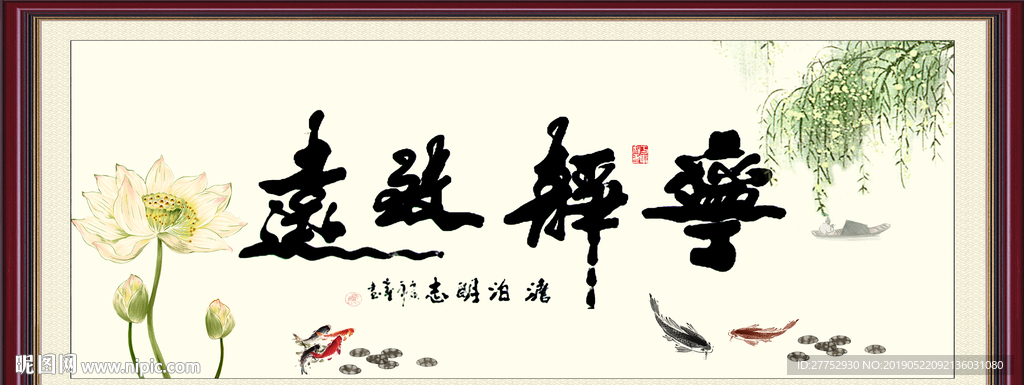 寧靜致遠
澹泊明志
昵图网 www.nipic.com
ID:27752930 NO:20190522092136031080